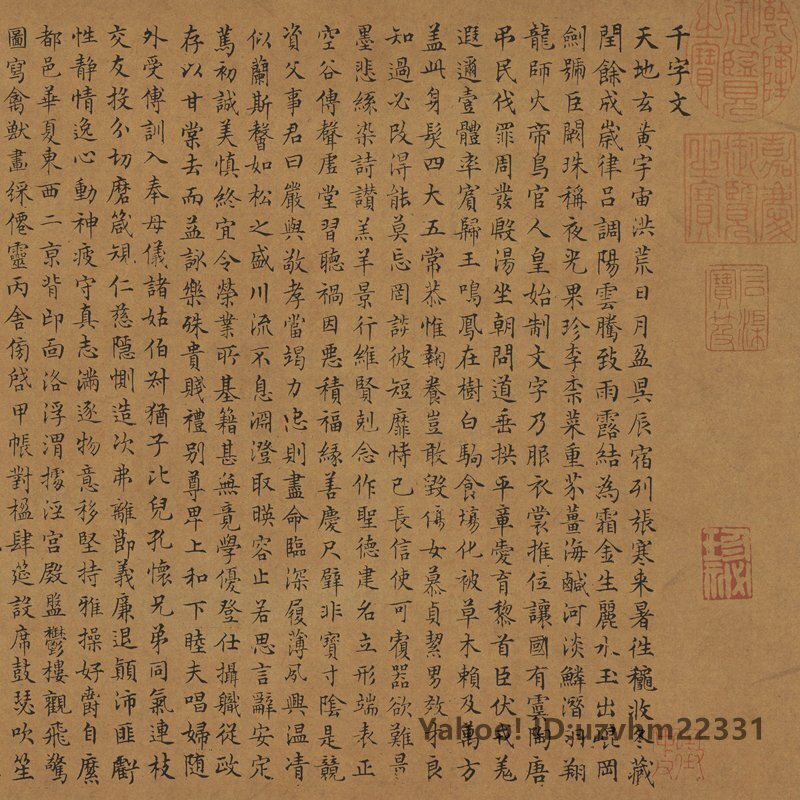 千字文
天地玄黃宇宙洪荒日月盈昃辰宿列張寒来暑徃穐收冬藏
閏餘成歲律呂調陽雲騰致雨露結為霜金生麗水玉出崑岡
劍號巨闕珠稱夜光果珍李柰菜重芥薑海鹹河淡鱗潛羽翔
龍師火帝鳥官人皇始制文字乃服衣裳推位讓國有虞陶唐
弔民伐罪周發殷湯坐朝問道垂拱平章愛育黎首臣伏戎羌
遐邇壹體率賓歸王鳴鳳在樹白駒食場化被草木賴及萬方
盖此身髮四大五常恭惟鞠養豈敢毀傷女慕貞潔男效才良
知過必改得能莫忘罔談彼短靡恃己長信使可覆器欲難量
墨悲絲染詩讚羔羊景行維賢剋念作聖德建名立形端表正
空谷傳聲虛堂習聽禍因惡積福緣善慶尺璧非寶寸陰是競
資父事君曰嚴與敬孝當竭力忠則盡命臨深履薄夙興温凊
似蘭斯馨如松之盛川流不息淵澄取暎容止若思言辭安定
篤初誠美慎終宜令榮業所基籍甚無竟學優登仕攝職從政
存以甘棠去而益詠樂殊貴賤禮别尊卑上和下睦夫唱婦随
外受傅訓入奉母儀諸姑伯叔猶子比兒孔懷兄弟同氣連枝
交友投分切磨箴規仁慈隱惻造次弗離節義廉退顛沛匪虧
性静情逸心動神疲守真志滿逐物意移堅持雅操好爵自縻
都邑華夏東西二京背邙面洛浮渭據涇宮殿盤鬱樓觀飛驚
圖寫禽獸畫綵僊靈丙舍傍啓甲帳對楹肆筵設席鼓瑟吹笙
乾隆御覽之寶
嘉慶御覽之寶
石渠寶笈
Yahoo! ID:uzvhm22331